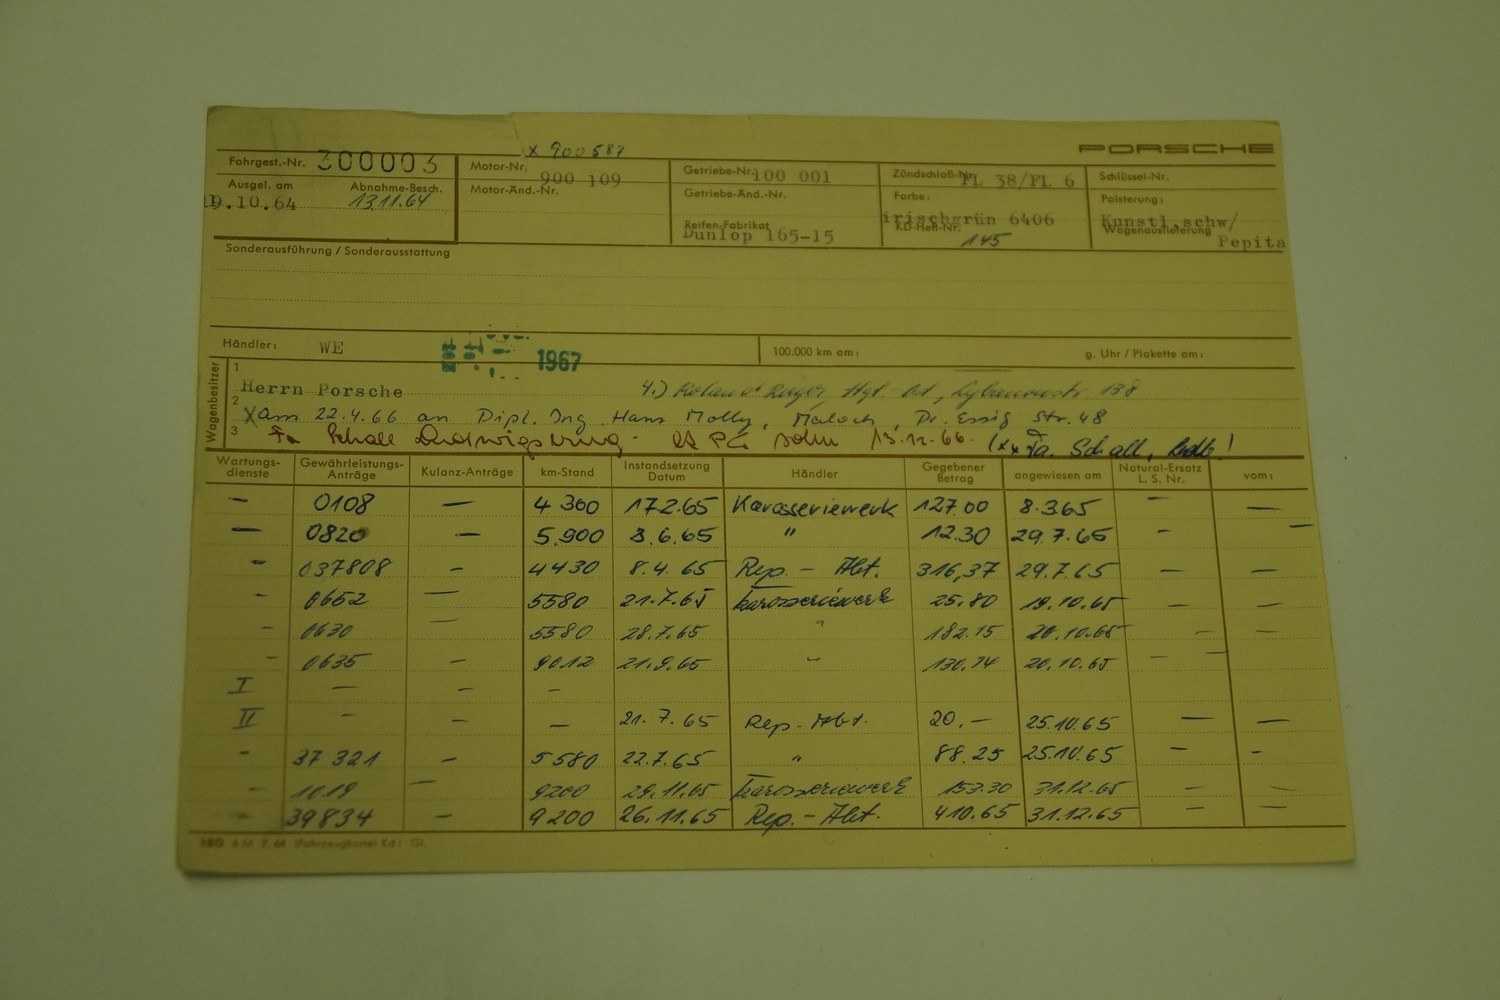 x 900587
PORSCHE
Fahrgest.-Nr. 300003 Motor-Nr. 900 109 Getriebe-Nr. 100 001 Zündschloß-Nr. FL 38/FL 6 Schlüssel-Nr.
Ausgel. am Abnahme-Besch. Motor-Änd.-Nr. Getriebe-Änd.-Nr. Farbe: Polsterung:
19.10.64 13.11.64 Reifen-Fabrikat irischgrün 6406 Kunstl.schw/
Dunlop 165-15 KD-Heft-Nr. 145 Wagenauslieferung Pepita
Sonderausführung / Sonderausstattung
Händler: WE 1967 100.000 km am: g. Uhr / Plakette am:
Wagenbesitzer
1 Herrn Porsche 4.) 138
2 x am 22.4.66 an Dipl. Ing. Hans Molly, Malsch, Dr. Essig Str. 48
3 Fa Schall Ludwigsburg 13.12.66. (xx Fa. Schall,
Wartungs- Gewährleistungs- Kulanz-Anträge km-Stand Instandsetzung Händler Gegebener angewiesen am Natural-Ersatz vom:
dienste Anträge Datum Betrag L. S. Nr.
— 0108 — 4300 17.2.65 Karosseriewerk 127.00 8.3.65 — —
— 0820 — 5.900 8.6.65 " 12.30 29.7.65 - —
- 037808 - 4430 8.4.65 Rep. - Abt. 316,37 29.7.65 — —
- 0652 — 5580 21.7.65 Karosseriewerk 25.80 19.10.65 — —
- 0630 — 5580 28.7.65 " 182.15 20.10.65 — —
- 0635 — 9012 21.9.65 " 130.74 20.10.65 — —
I — — —
II - — — 21.7.65 Rep.-Abt. 20.— 25.10.65 — —
- 37 321 - 5580 22.7.65 " 88.25 25.10.65 — -
- 1019 — 9200 29.11.65 Karosseriewerk 153.30 31.12.65 — —
- 39834 — 9200 26.11.65 Rep. - Abt. 410.65 31.12.65 — —
180 6 M 7.64 (Fahrzeugkartei Kd)